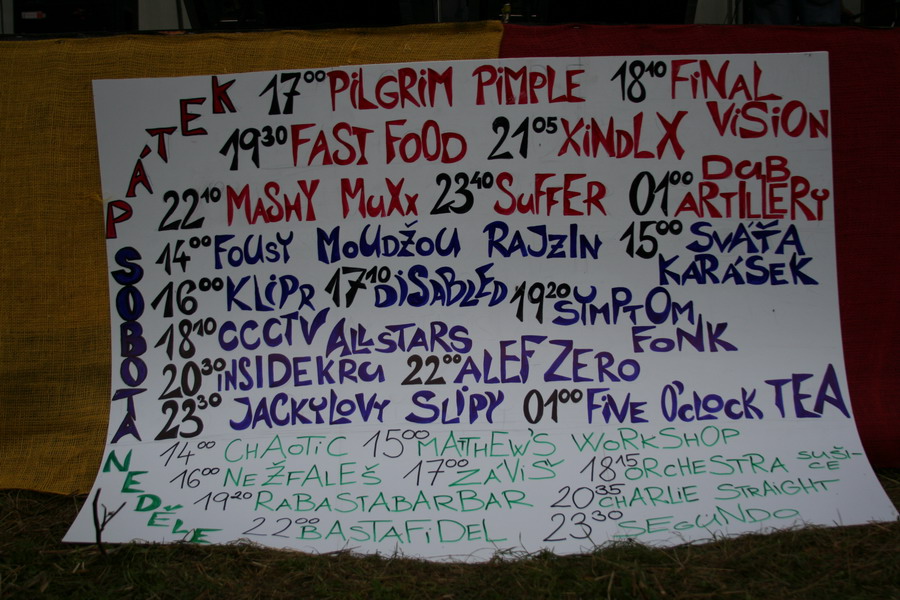 PÁTEK
17⁰⁰ PiLGRiM PiMPLE 18¹⁰ FiNAL ViSiON
19³⁰ FAST FOOD 21⁰⁵ XiNDLX
22¹⁰ MASHY MUXx 23⁴⁰ SUFFER 01⁰⁰ DUB ARTILLERY
SOBOTA
14⁰⁰ FOUSY MOUDŽOU RAJZIN 15⁰⁰ SVÁŤA KARÁSEK
16⁰⁰ KLiPR 17¹⁰ DiSABLED 19²⁰ SYMPTOM FONK
18¹⁰ CCCTV ALLSTARS
20³⁰ iNSIDEKRU 22⁰⁰ ALEF ZERO
23³⁰ JACKYLOVY SLiPY 01⁰⁰ FiVE O'CLOCK TEA
NEDĚLE
14⁰⁰ CHAOTiC 15⁰⁰ MATTHEW'S WORKSHOP
16⁰⁰ NEŽFALEŠ 17⁰⁰ ZÁViŠ 18¹⁵ ORCHESTRA SUŠI-CE
19²⁰ RABASTABARBAR 20³⁵ CHARLiE STRAiGHT
22⁰⁰ BASTAFiDEL 23³⁰ SEGUNDO